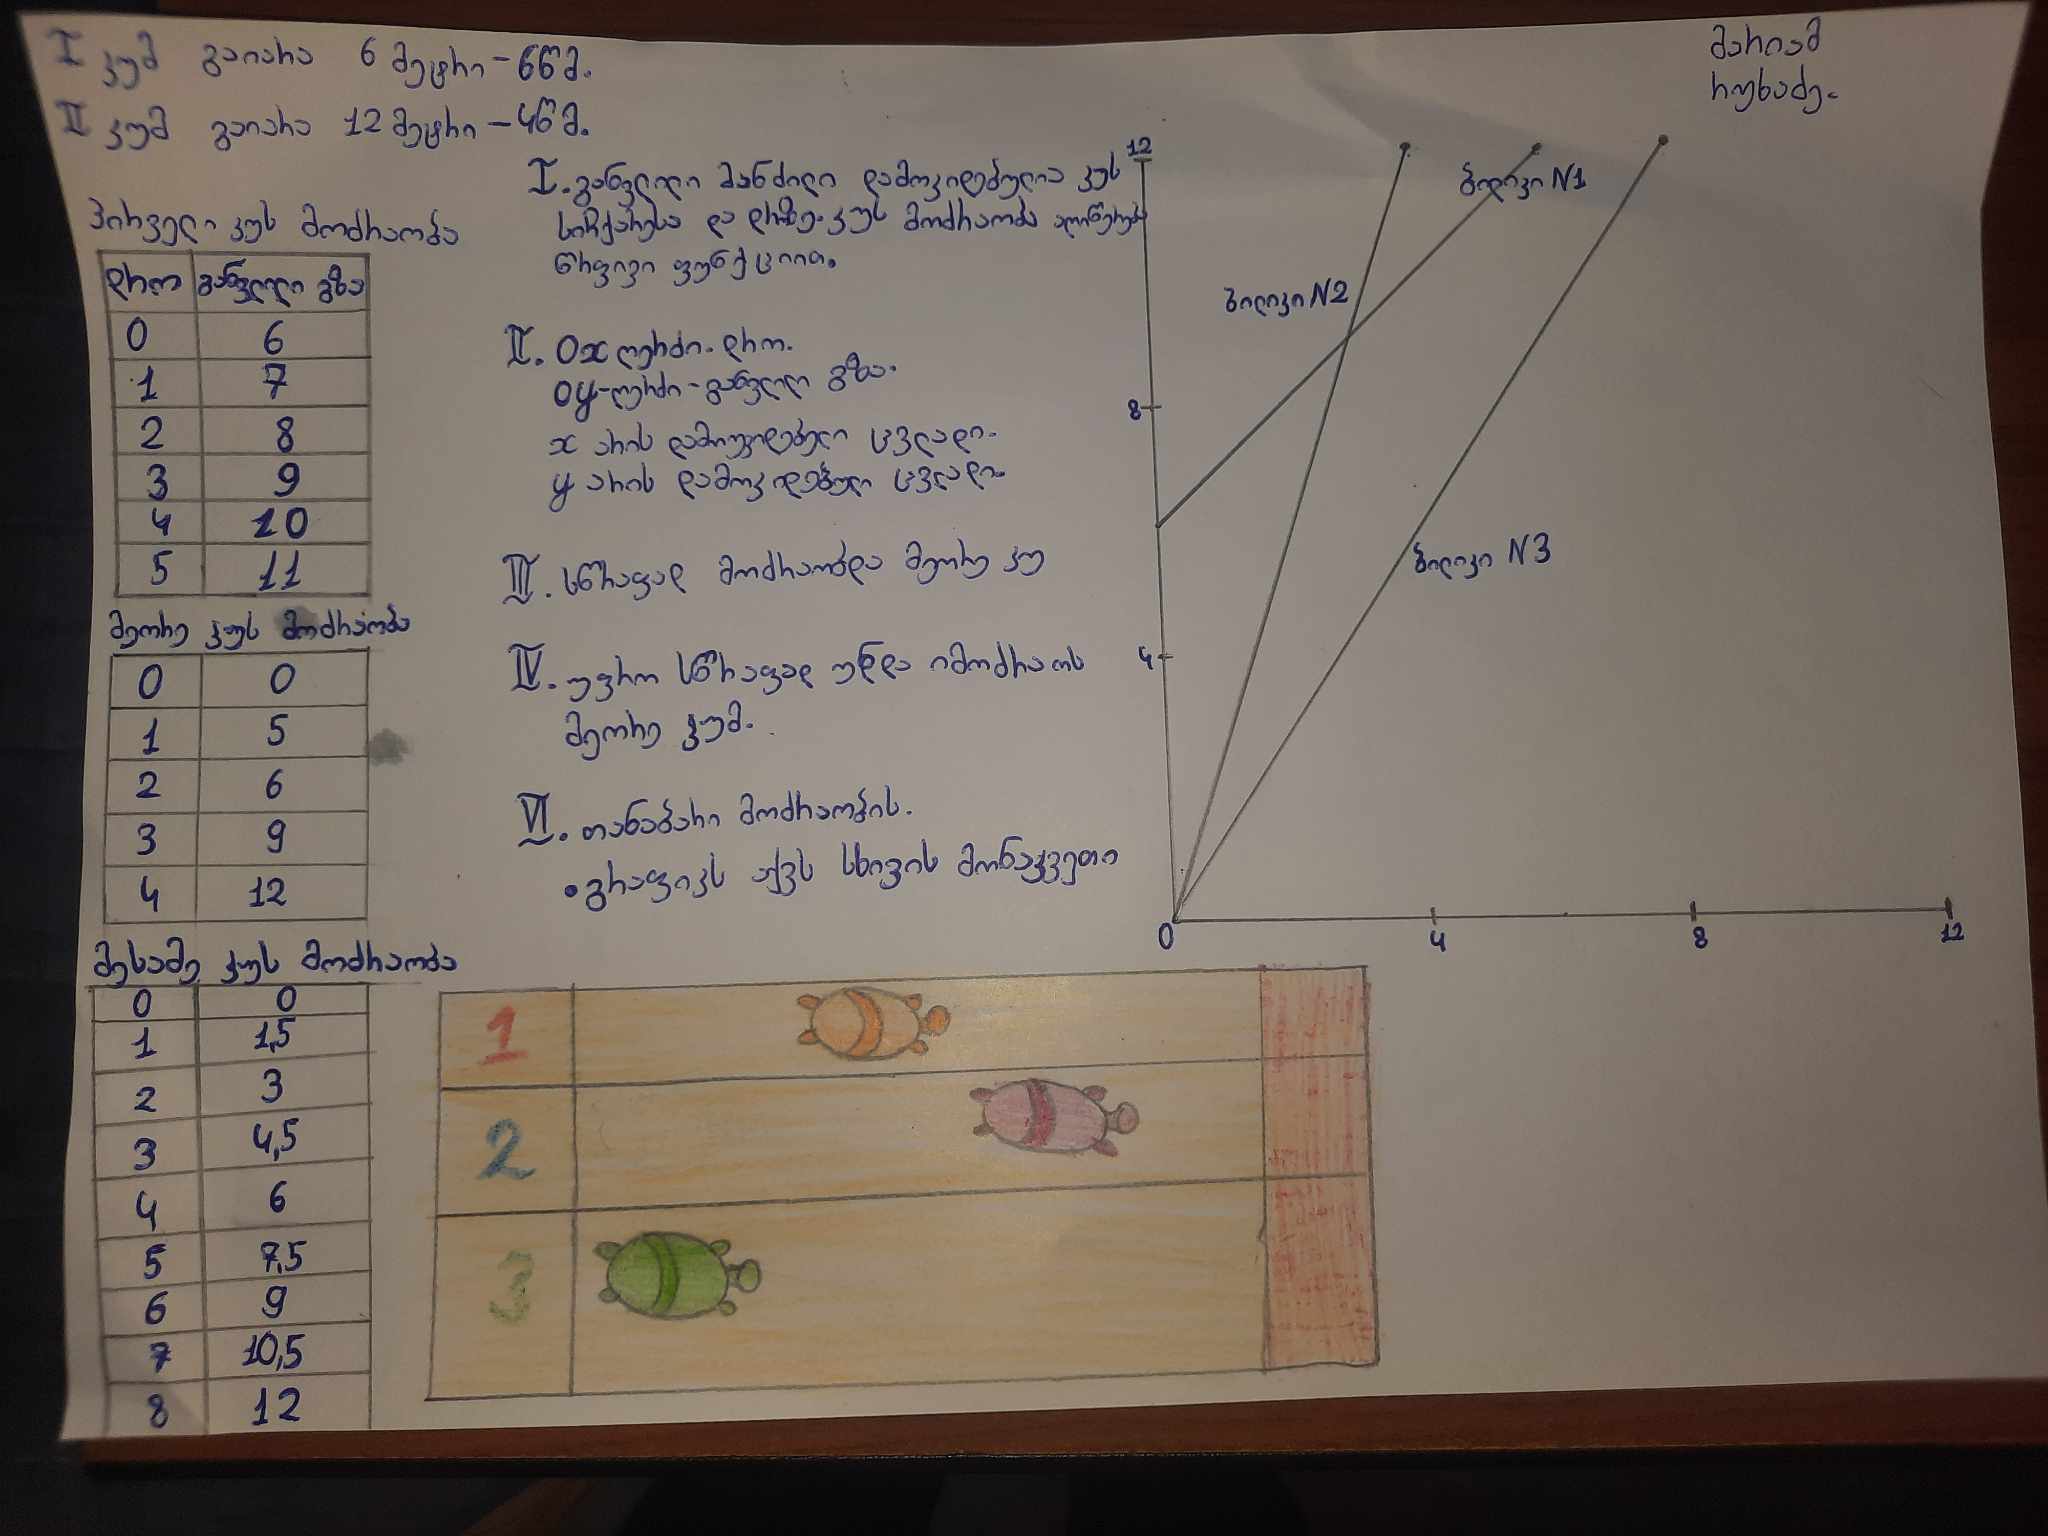 I კუმ გაიარა 6 მეტრი - 6წმ.
II კუმ გაიარა 12 მეტრი - 4წმ.
მარიამ
რუხაძე.
პირველი კუს მოძრაობა
დრო განვლილი გზა
0 6
1 7
2 8
3 9
4 10
5 11
მეორე კუს მოძრაობა
0 0
1 5
2 6
3 9
4 12
მესამე კუს მოძრაობა
0 0
1 1,5
2 3
3 4,5
4 6
5 7,5
6 9
7 10,5
8 12
I. განვლილი მანძილი დამოკიდებულია კუს
სიჩქარესა და დროზე. კუს მოძრაობა
წრფივი ფუნქციით.
II. Ox ღერძი - დრო.
Oy - ღერძი - განვლილ გზა.
x არის ცვლადი.
y არის დამოკიდებული ცვლადი.
III. სწრაფად მოძრაობდა მეორე კუ
IV. უფრო სწრაფად უნდა იმოძრაოს
მეორე კუმ.
VI. თანაბარი მოძრაობის.
• გრაფიკს აქვს სხივის მონაკვეთი
12
8
4
0 4 8 12
ბილიკი N1
ბილიკი N2
ბილიკი N3
1
2
3